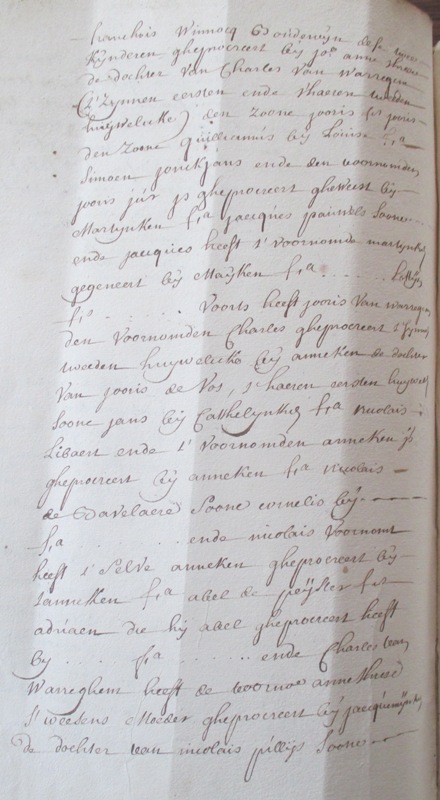 franchois Winnocq Boudewijn dese twee
kijnderen gheprocreert bij jo.e anne
de dochter van Charles van warregem
(t'zynnen eersten ende t'haeren tweeden
huijwelicke) den zoone jooris fs jooris
den zoone guilliamus bij Louise f.ia
Simoen jonckjans ende den voornomden
jooris jus js gheprocreert gheweest bij
Martynken f.ia jacques pauwels soone
ende jacques heeft t' voornomde martynken
gegeneert bij Maijken f.ia . . . . .
f.ia . . . . . . Voorts heeft jooris van warregem
den voornomden Charles gheprocreert t'sijnen
tweeden huywelicke bij anneken de dochter
van jooris de Vos, t'haeren eersten huywel
soone jans bij Cathelynken f.ia nicolais
Libaert ende t' voornomden anneken js
gheprocreert bij anneken f.ia nicolais
de Bavelaere soone cornelis bij
f.ia . . . . . . ende nicolais voornomt
heeft t'selve anneken gheprocreert bij
tanneken f.ia abel de peijster fs
adriaen die hij abel gheprocreert heeft
by . . . f.ia . . . . . . ende Charles van
Warreghem heeft de voornoe anne
s'weesens Moeder gheprocreert bij jacquemijnken
de dochter van nicolais pillijs soone